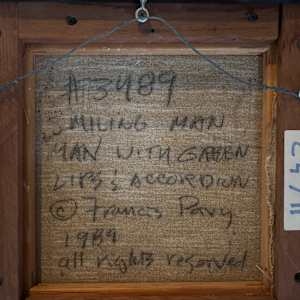 A3489
SMILING MAN
MAN WITH GREEN
LIPS & ACCORDION
© Francis Pavy
1989
all rights reserved